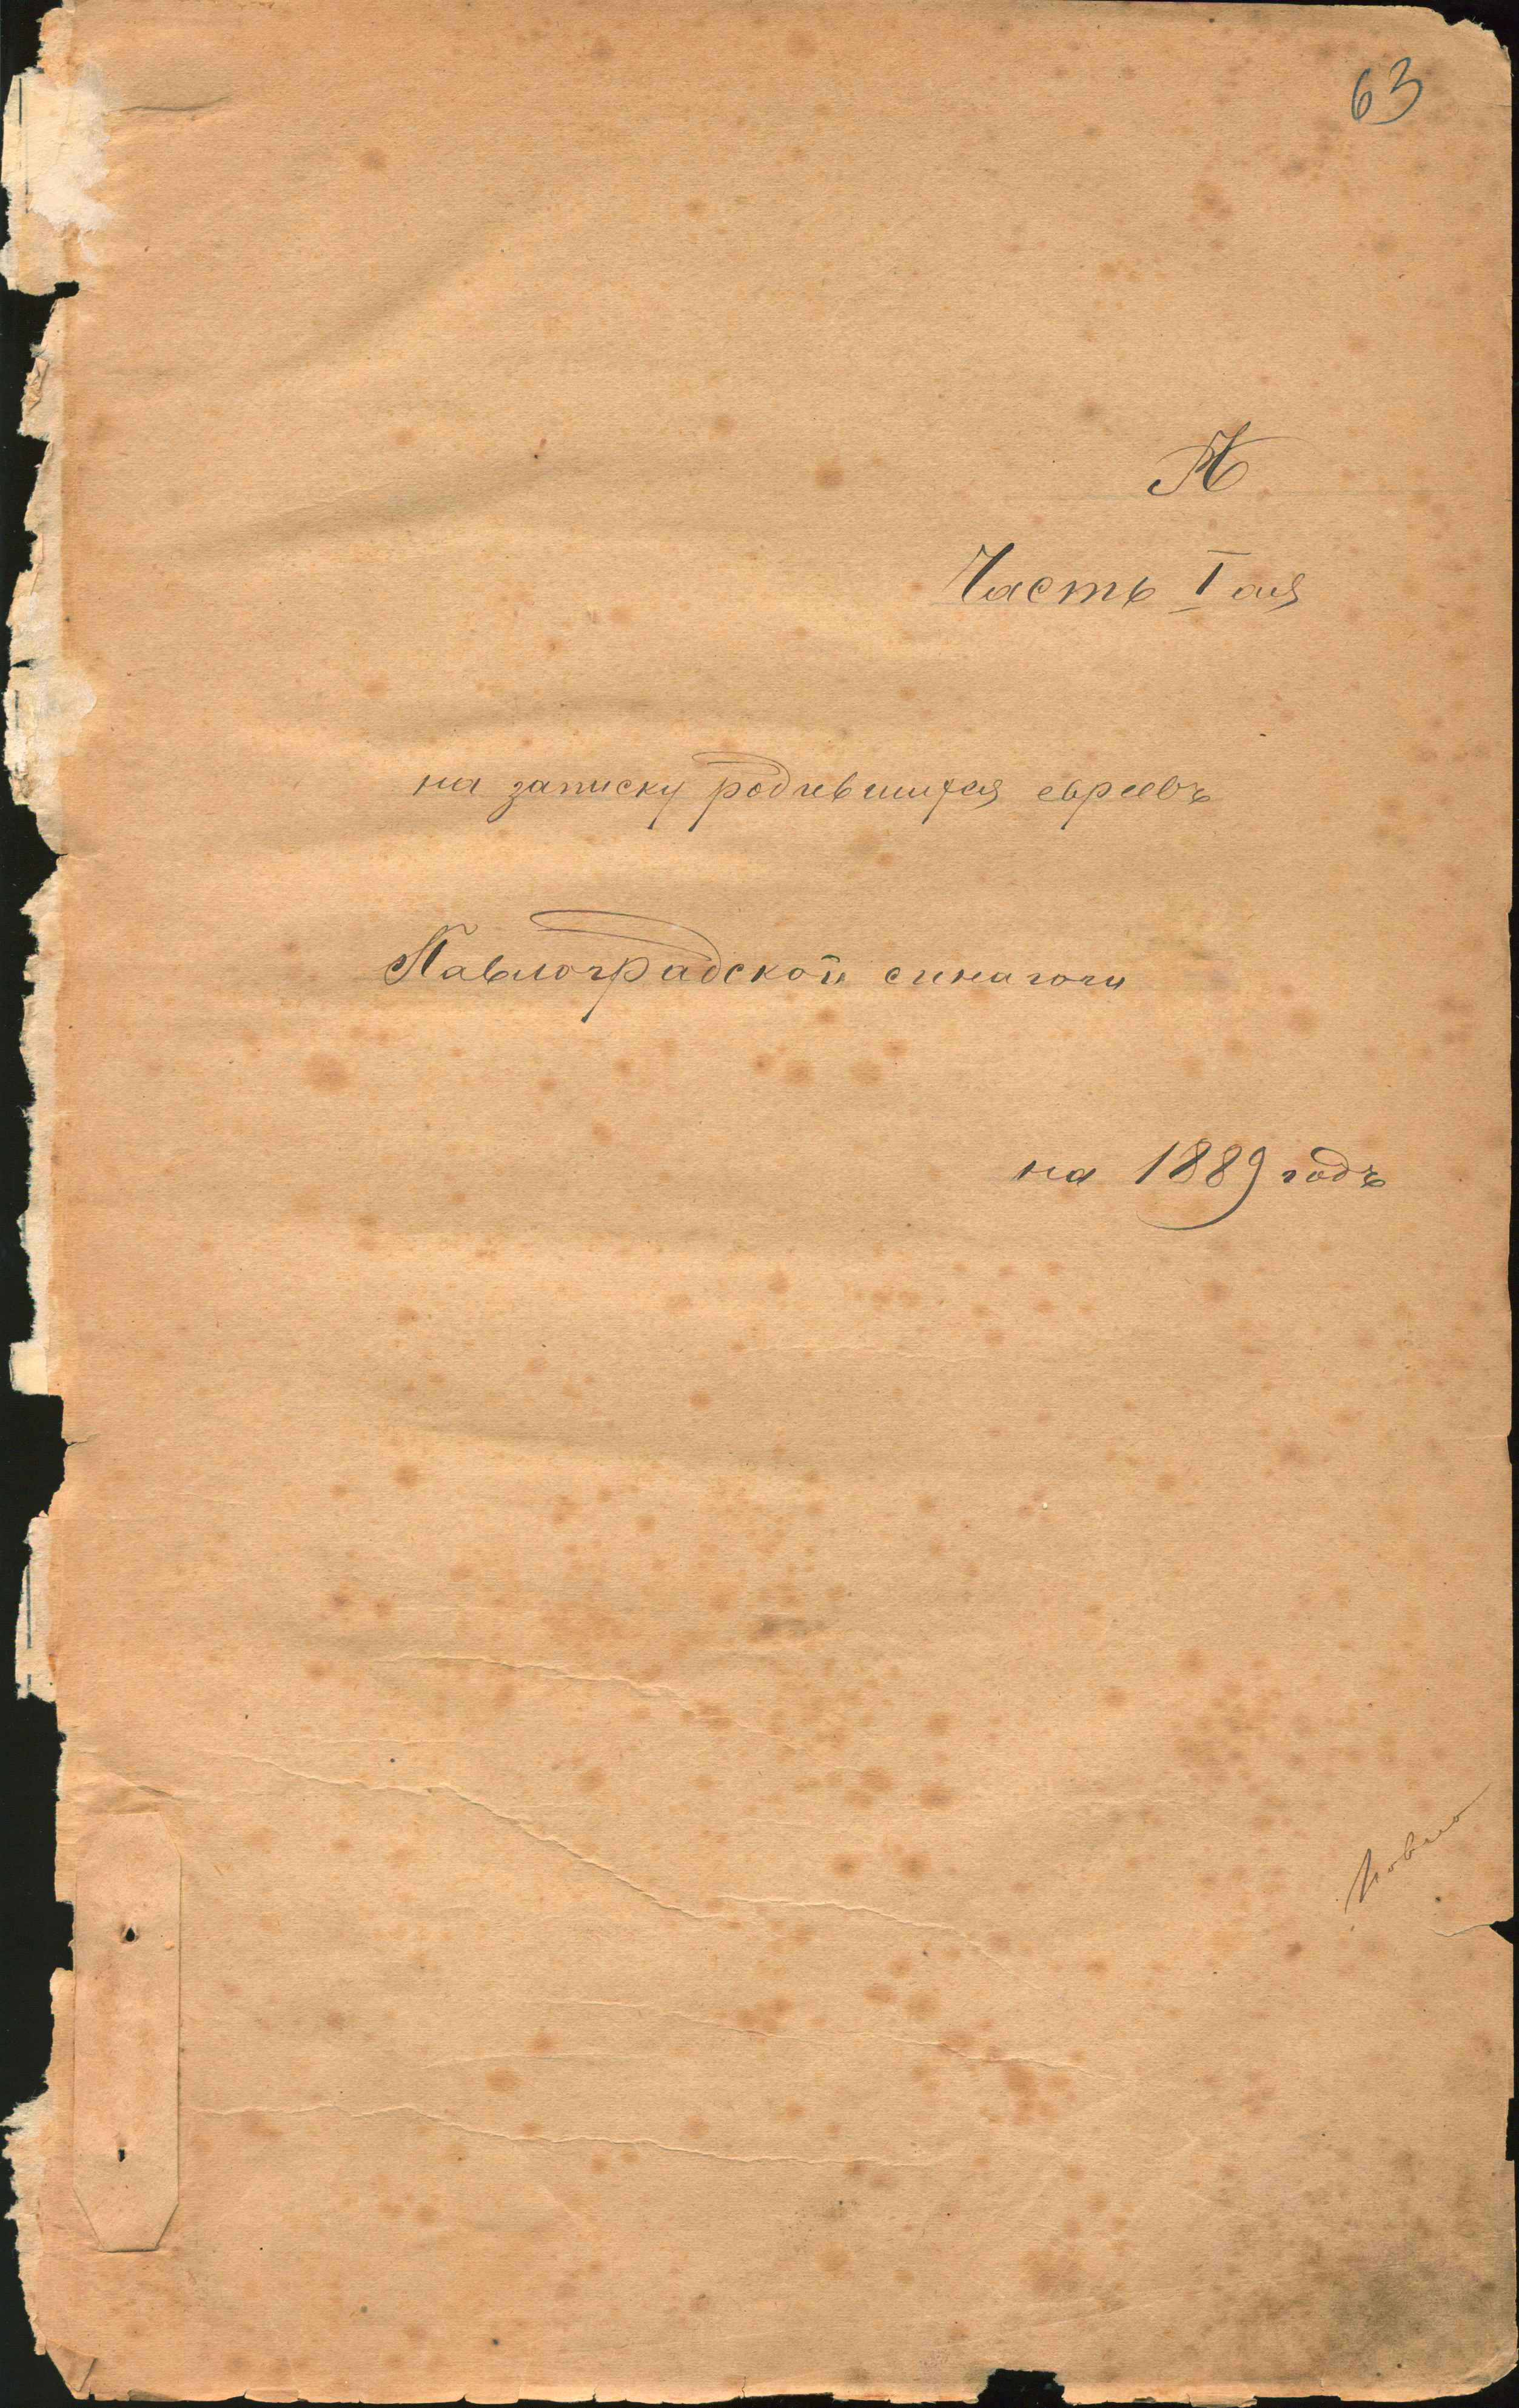 63
А
Часть I ая
на записку родившихся евреевъ
Павлоградской синагоги
на 1889 годъ